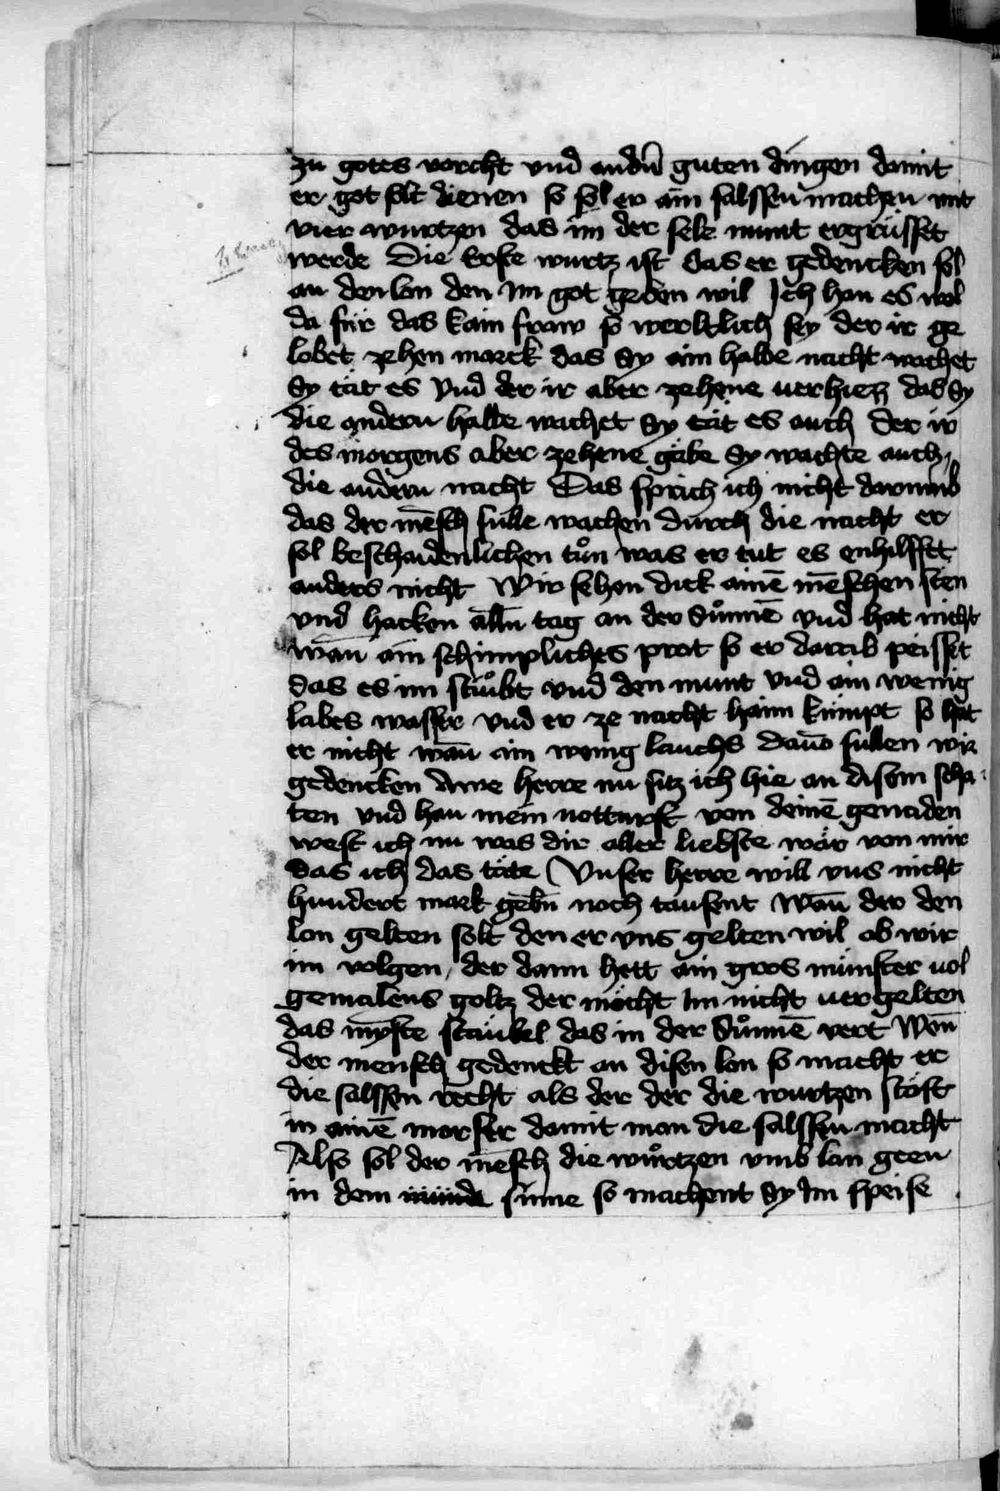 zu gotes vorcht vnd andn̄ guten dingen damit
er got solt dienen so sol er ain salssen machen mit
vier wurtzen das im der sele munt ergrüsset
werde Die Erste wurtz ist das er gedencken sol
an den lon den Im got geben wil Ich han es wol
da für das kain fraw so werltlich sey der ir ge
lobet zehen marck das sy ain halbe nacht wachet
sy tät es Vnd der ir aber zehene verhiez das sy
die andern halbe wachet sy tät es auch der ir
des morgens aber zehene gäbe sy wachte auch
die andern nacht Das sprich ich nicht darumb
das der mēsch sulle wachen durch die nacht er
sol beschaidenlichen tůn was er tut es enhilfftt
anders nicht Wir sehen dick ainē mēschen sten
vnd hacken alln̄ tag an der sůnnē vnd hat nicht
wān ain schimpliches prot so er darab peisset
das es im stůbt vnd den munt vnd ain wenig
labes wasser vnd er ze nacht haim kümpt so hat
er nicht wān ain wenig lauchs dauō sullen wir
gedencken Awe herre nu sitz ich hie an disem scha-
ten vnd han mein notturft von deinē genaden
west ich nu was dir aller liebste wär von mir
das ich das täte Vnser herre will vns nicht
hundert mark gebn̄ noch tausent Wān der den
lon gelten solt den er vns gelten wil ob wir
im volgen, der dann hett ain gros münster vol
gemalens goltz der möcht Im nicht vergelten
das mȳste stäubel das in der sůnnē vert Wen̄
der mensch gedenckt an disen lon so macht er
die salssen recht als der der die wurtzen stöst
in ainē morser damit man die salssen macht
Also sol der mēsch die wůrtzen vmb lan geen
in dem sinne so machent sy Im speise